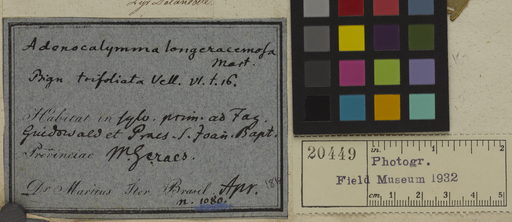 Adenocalymma longeracemosa
Mart.
Bign. trifoliata Vell. VI. t. 16.
Habitat in sylv. prim. ad Faz.
et Praes. S. Joaõ Bapt.
Provinciae M. Geraes.
Dr. Martius Iter Brasil. Apr.
n. 1080.
20449
in.
Photogr.
Field Museum 1932
cm. 1 2 3 4 5